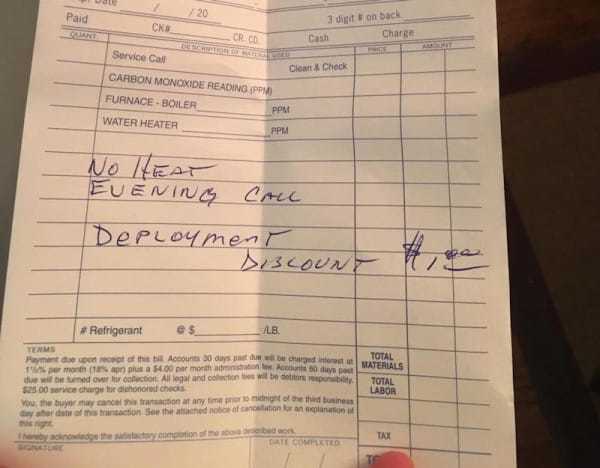 Date / /20
3 digit # on back
Paid CK# CR. CD. Cash Charge
QUANT. DESCRIPTION OF MATERIAL USED PRICE AMOUNT
Service Call Clean & Check
CARBON MONOXIDE READING (PPM)
FURNACE - BOILER PPM
WATER HEATER PPM
NO HEAT
EVENING CALL
DEPLOYMENT
DISCOUNT $1.00
# Refrigerant @ $ /LB.
TERMS
Payment due upon receipt of this bill. Accounts 30 days past due will be charged interest at
1½% per month (18% apr) plus a $4.00 per month administration fee. Accounts 60 days past
due will be turned over for collection. All legal and collection fees will be debtors responsibility.
$25.00 service charge for dishonored checks.
You, the buyer may cancel this transaction at any time prior to midnight of the third business
day after date of this transaction. See the attached notice of cancellation for an explanation of
this right.
I hereby acknowledge the satisfactory completion of the above described work.
SIGNATURE DATE COMPLETED
/ /
TOTAL
MATERIALS
TOTAL
LABOR
TAX